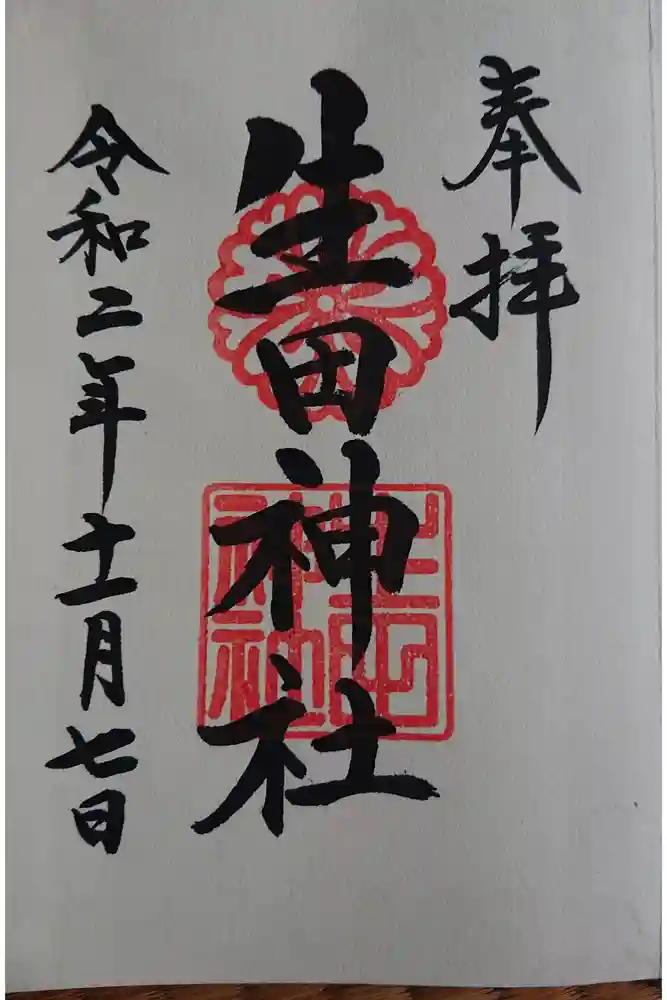 奉拝
生田神社
令和二年十一月七日